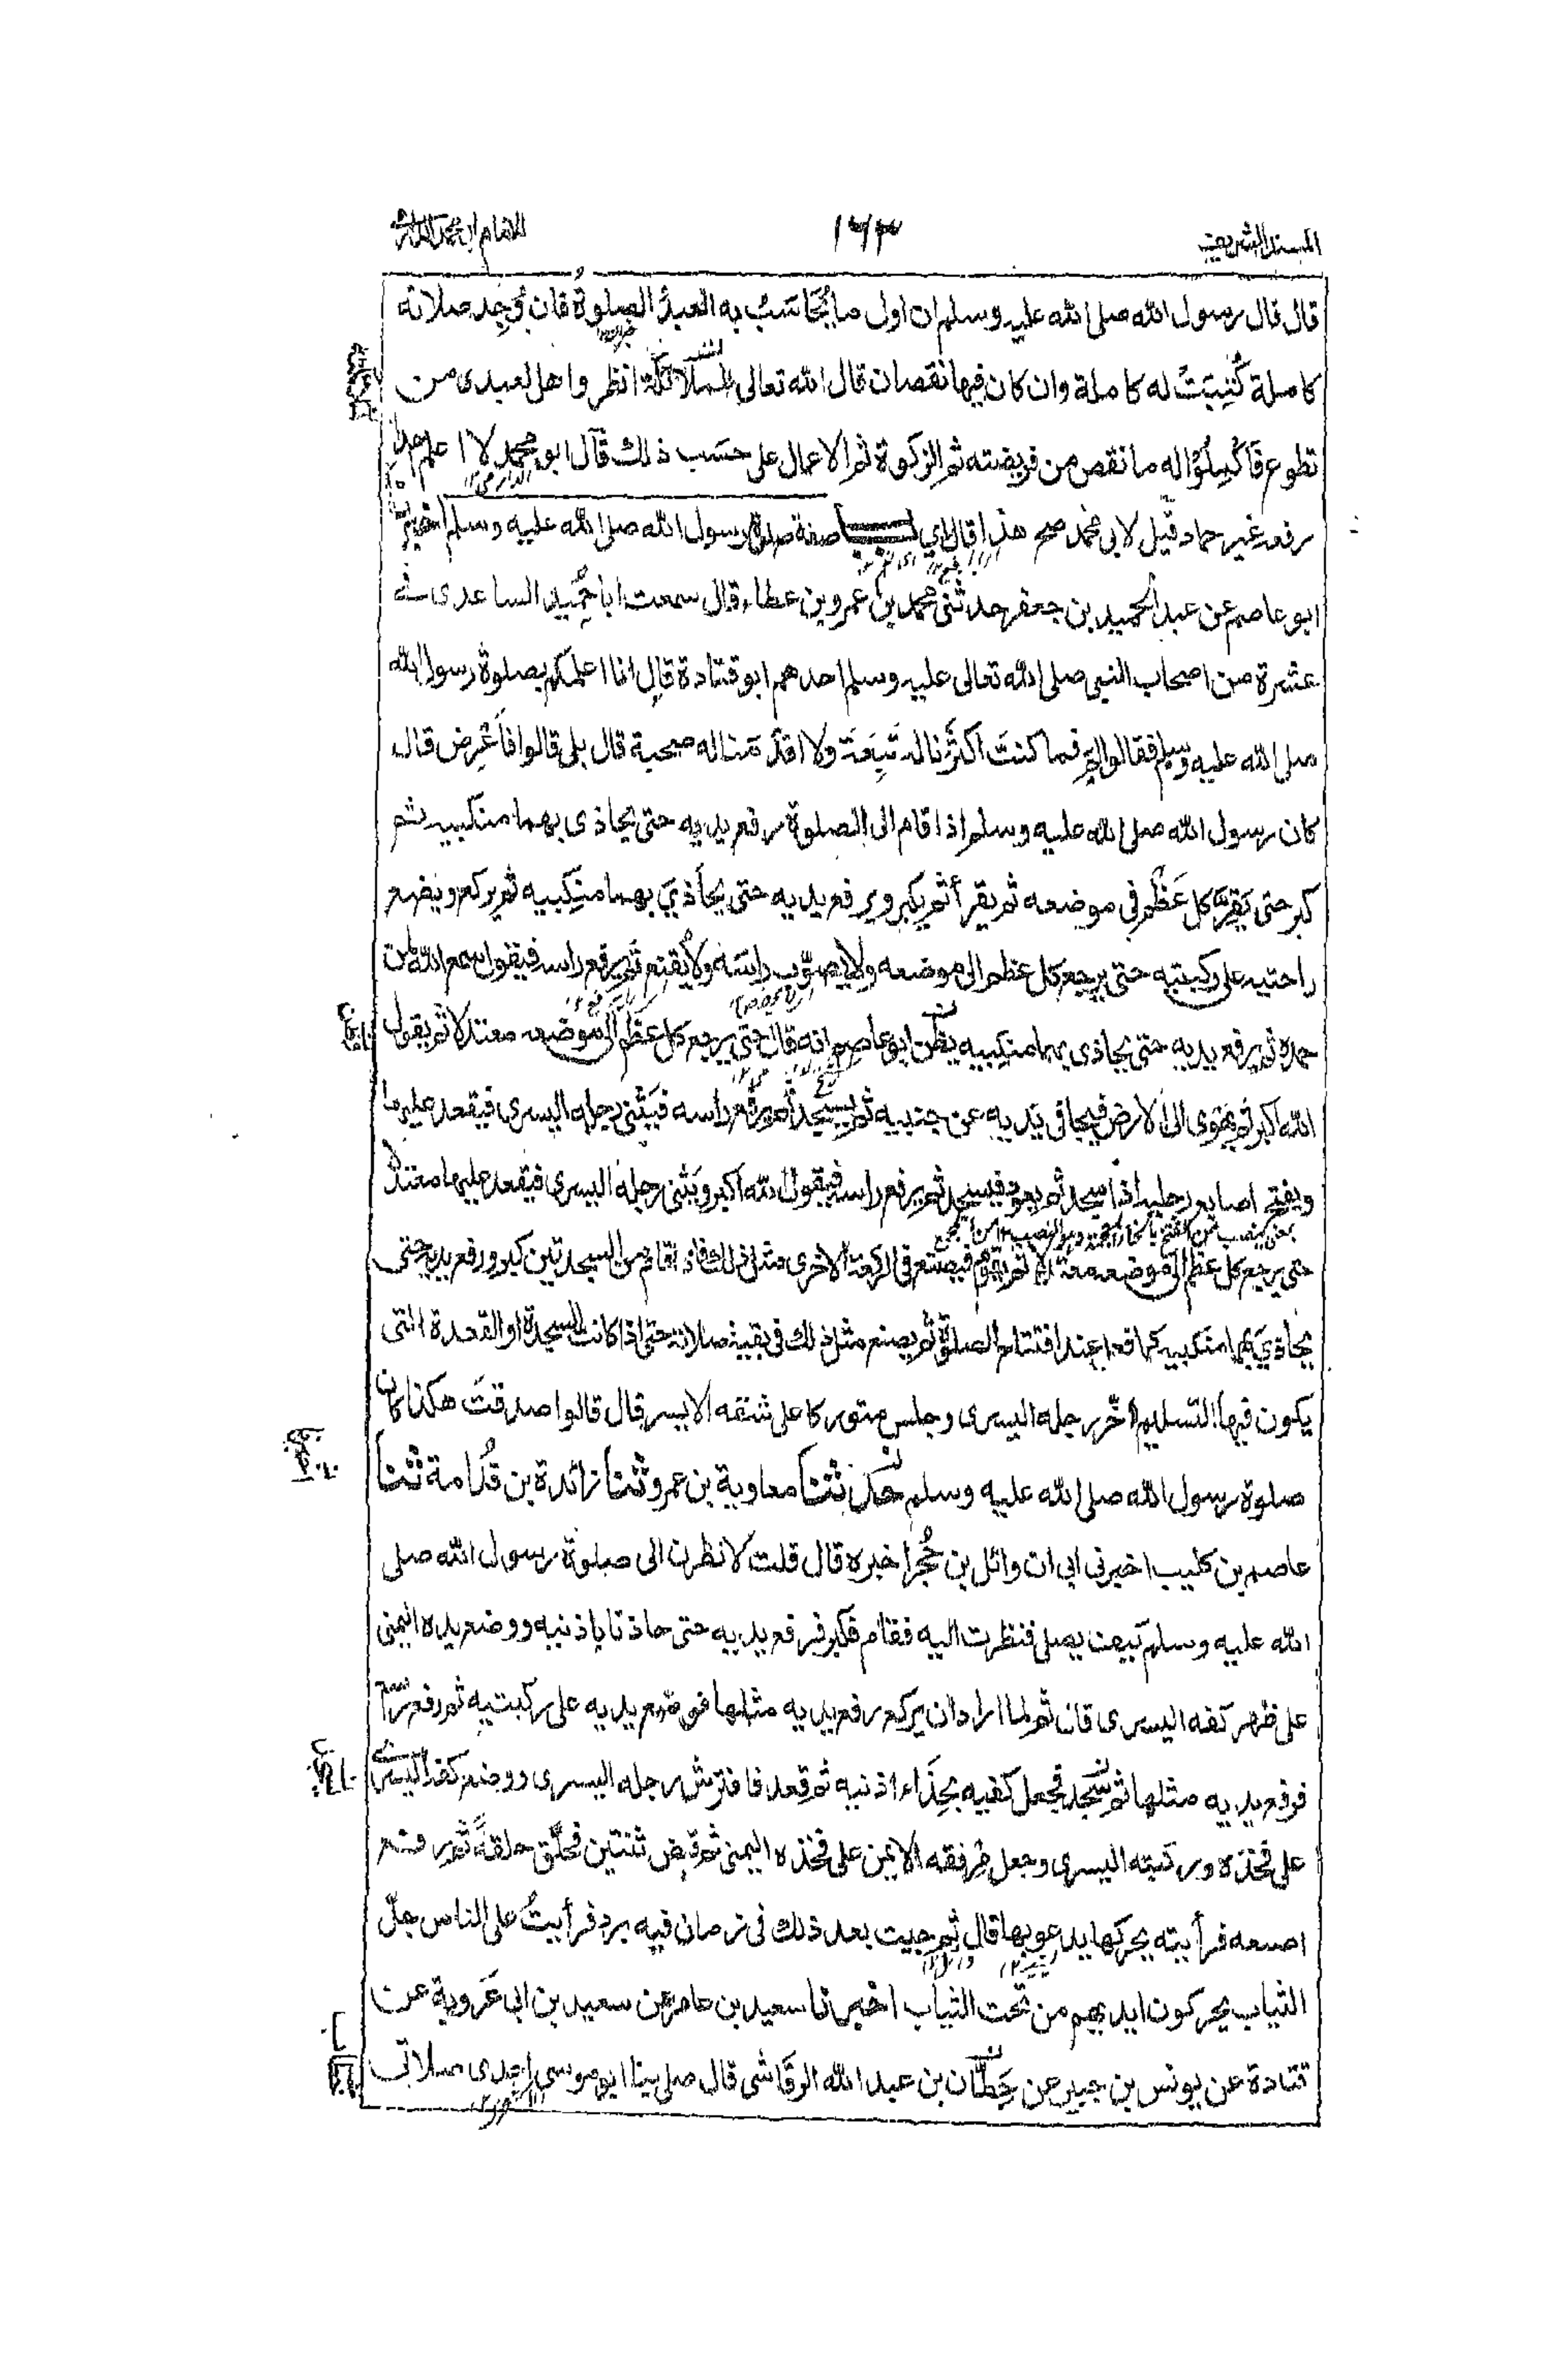 المسند الشريف ١٦٣ للامام ابي محمد الدارمي
قال قال رسول الله صلى الله عليه وسلم ان اول ما يُحَاسَبُ به العبدُ الصلوةُ فان وُجِد صلاته
كاملة كُتِبَتْ له كاملة وان كان فيها نقصان قال الله تعالى للملائكة انظروا هل لعبدى من
تطوع فَاَكْمِلُوْا له ما نقص من فريضته ثم الزكوة ثم الاعمال على حسَب ذلك قال ابو محمد لا اعلم احدا
رفعه غير حماد قيل لابى محمد صح هذا قال اى صفة صلوة رسول الله صلى الله عليه وسلم اخبرنا
ابو عاصم عن عبد الحميد بن جعفر حدثنى محمد بن عمرو بن عطاء قال سمعت ابا حُمَيد الساعدى فى
عشرة من اصحاب النبى صلى الله تعالى عليه وسلم احدهم ابو قتادة قال انا اعلمكم بصلوة رسول الله
صلى الله عليه وسلم فقالوا لم فما كنتَ اكثرَنا له تَبِعَةً ولا اقدَمَنا له صحبة قال بلى قالوا فاَعْرِض قال
كان رسول الله صلى الله عليه وسلم اذا قام الى الصلوة رفع يديه حتى يحاذى بهما منكبيه ثم
كبر حتى يَقِرَّ كل عَظْم فى موضعه ثم يقرأ ثم يكبر ويرفع يديه حتى يحاذىَ بهما منكِبيه ثم يركع ويضع
راحتيه على ركبتيه حتى يرجع كل عظم الى موضعه ولا يصوّب راسَه ولا يُقنع ثم يرفع راسه فيقول سمع الله لمن
حمده ثم يرفع يديه حتى يحاذى بهما منكبيه يظن ابو عاصم انه قال حتى يرجع كل عظم الى موضعه معتدلا ثم يقول
الله اكبر ثم يَهْوى الى الارض فيجافى يديه عن جنبيه ثم يسجد ثم يرفع راسه فيَثْنى رجله اليسرى فيقعد عليها
ويفتخ اصابع رجليه اذا سجد ثم يعود فيسجد ثم يرفع راسه فيقول الله اكبر ويَثنى رجله اليسرى فيقعد عليها معتدلا
حتى يرجع كل عظم الى موضعه معتدلا ثم يقوم فيصنع فى الركعة الاخرى مثل ذلك فاذا قام من السجدتين كبر ورفع يديه حتى
يحاذىَ بهما منكبيه كما فعل عند افتتاح الصلوة ثم يصنع مثل ذلك فى بقية صلاته حتى اذا كانت السجدة او القعدة التى
يكون فيها التسليم اخّر رجله اليسرى وجلس متوركا على شقه الايسر قال قالوا صدقتَ هكذا كان
صلوة رسول الله صلى الله عليه وسلم حدثنا معاوية بن عمرو ثنا زائدة بن قُدامة ثنا
عاصم بن كليب اخبرنى ابى ان وائل بن حُجْر اخبره قال قلت لانظرن الى صلوة رسول الله صلى
الله عليه وسلم كيف يصلى فنظرت اليه فقام فكبر فرفع يديه حتى حاذتا باذنيه ووضع يده اليمنى
على ظهر كفه اليسرى قال ثم لما اراد ان يركع رفع يديه مثلها فوضع يديه على ركبتيه ثم رفع راسه
فرفع يديه مثلها ثم سجد فجعل كفيه بحِذَاء اذنيه ثم قعد فافترش رجله اليسرى ووضع كفه اليسرى
على فخذه وركبته اليسرى وجعل مِرفقه الايمن على فخذه اليمنى ثم قبض ثنتين فحلّق حلقةً ثم رفع
اصبعه فرأيته يحركها يدعو بها قال ثم جيت بعد ذلك فى زمان فيه برد فرأيتُ على الناس جلّ
الثياب يحركون ايديهم من تحت الثياب اخبرنا سعيد بن عامر عن سعيد بن ابى عَروبة عن
قتادة عن يونس بن جبير عن حِطّان بن عبد الله الرقاشى قال صلى بنا ابو موسى احدى صلاتى